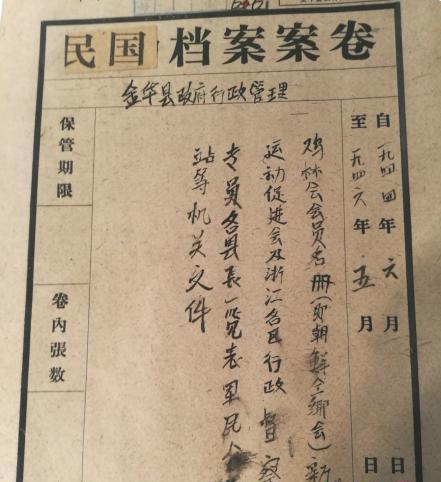 民国档案案卷
金华县政府行政管理
自一九四四年六月 日
至一九四六年五月 日
鸡林会会员名册(即朝鲜同乡会)新
运动促进会及浙江各区行政督察
专员各县长一览表军民
站等机关文件
保管期限
卷内張数